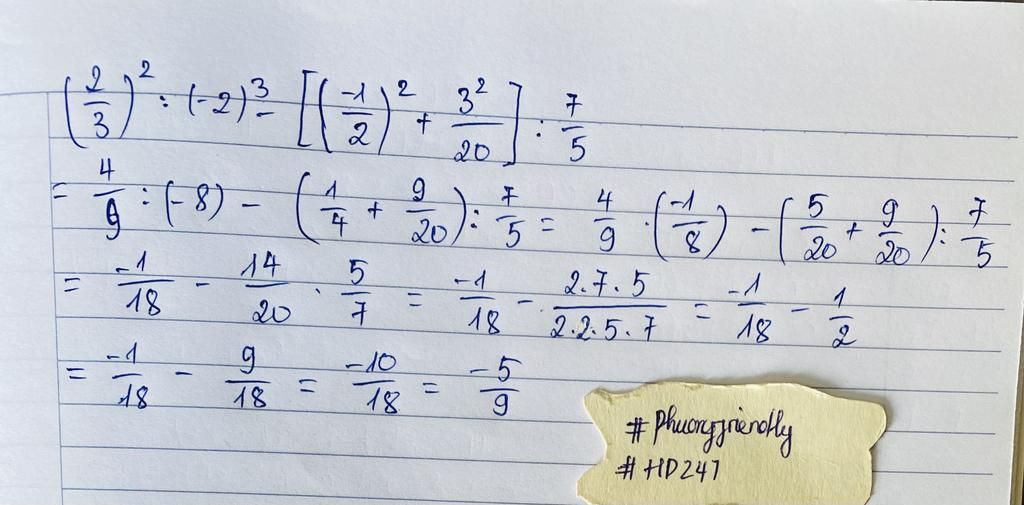 (2/3)² : (-2)³ - [(-1/2)² + 3²/20] : 7/5
= 4/9 : (-8) - (1/4 + 9/20) : 7/5 = 4/9 . (-1/8) - (5/20 + 9/20) : 7/5
= -1/18 - 14/20 . 5/7 = -1/18 - 2.7.5/2.2.5.7 = -1/18 - 1/2
= -1/18 - 9/18 = -10/18 = -5/9
# Phuongfriendly
# HD247